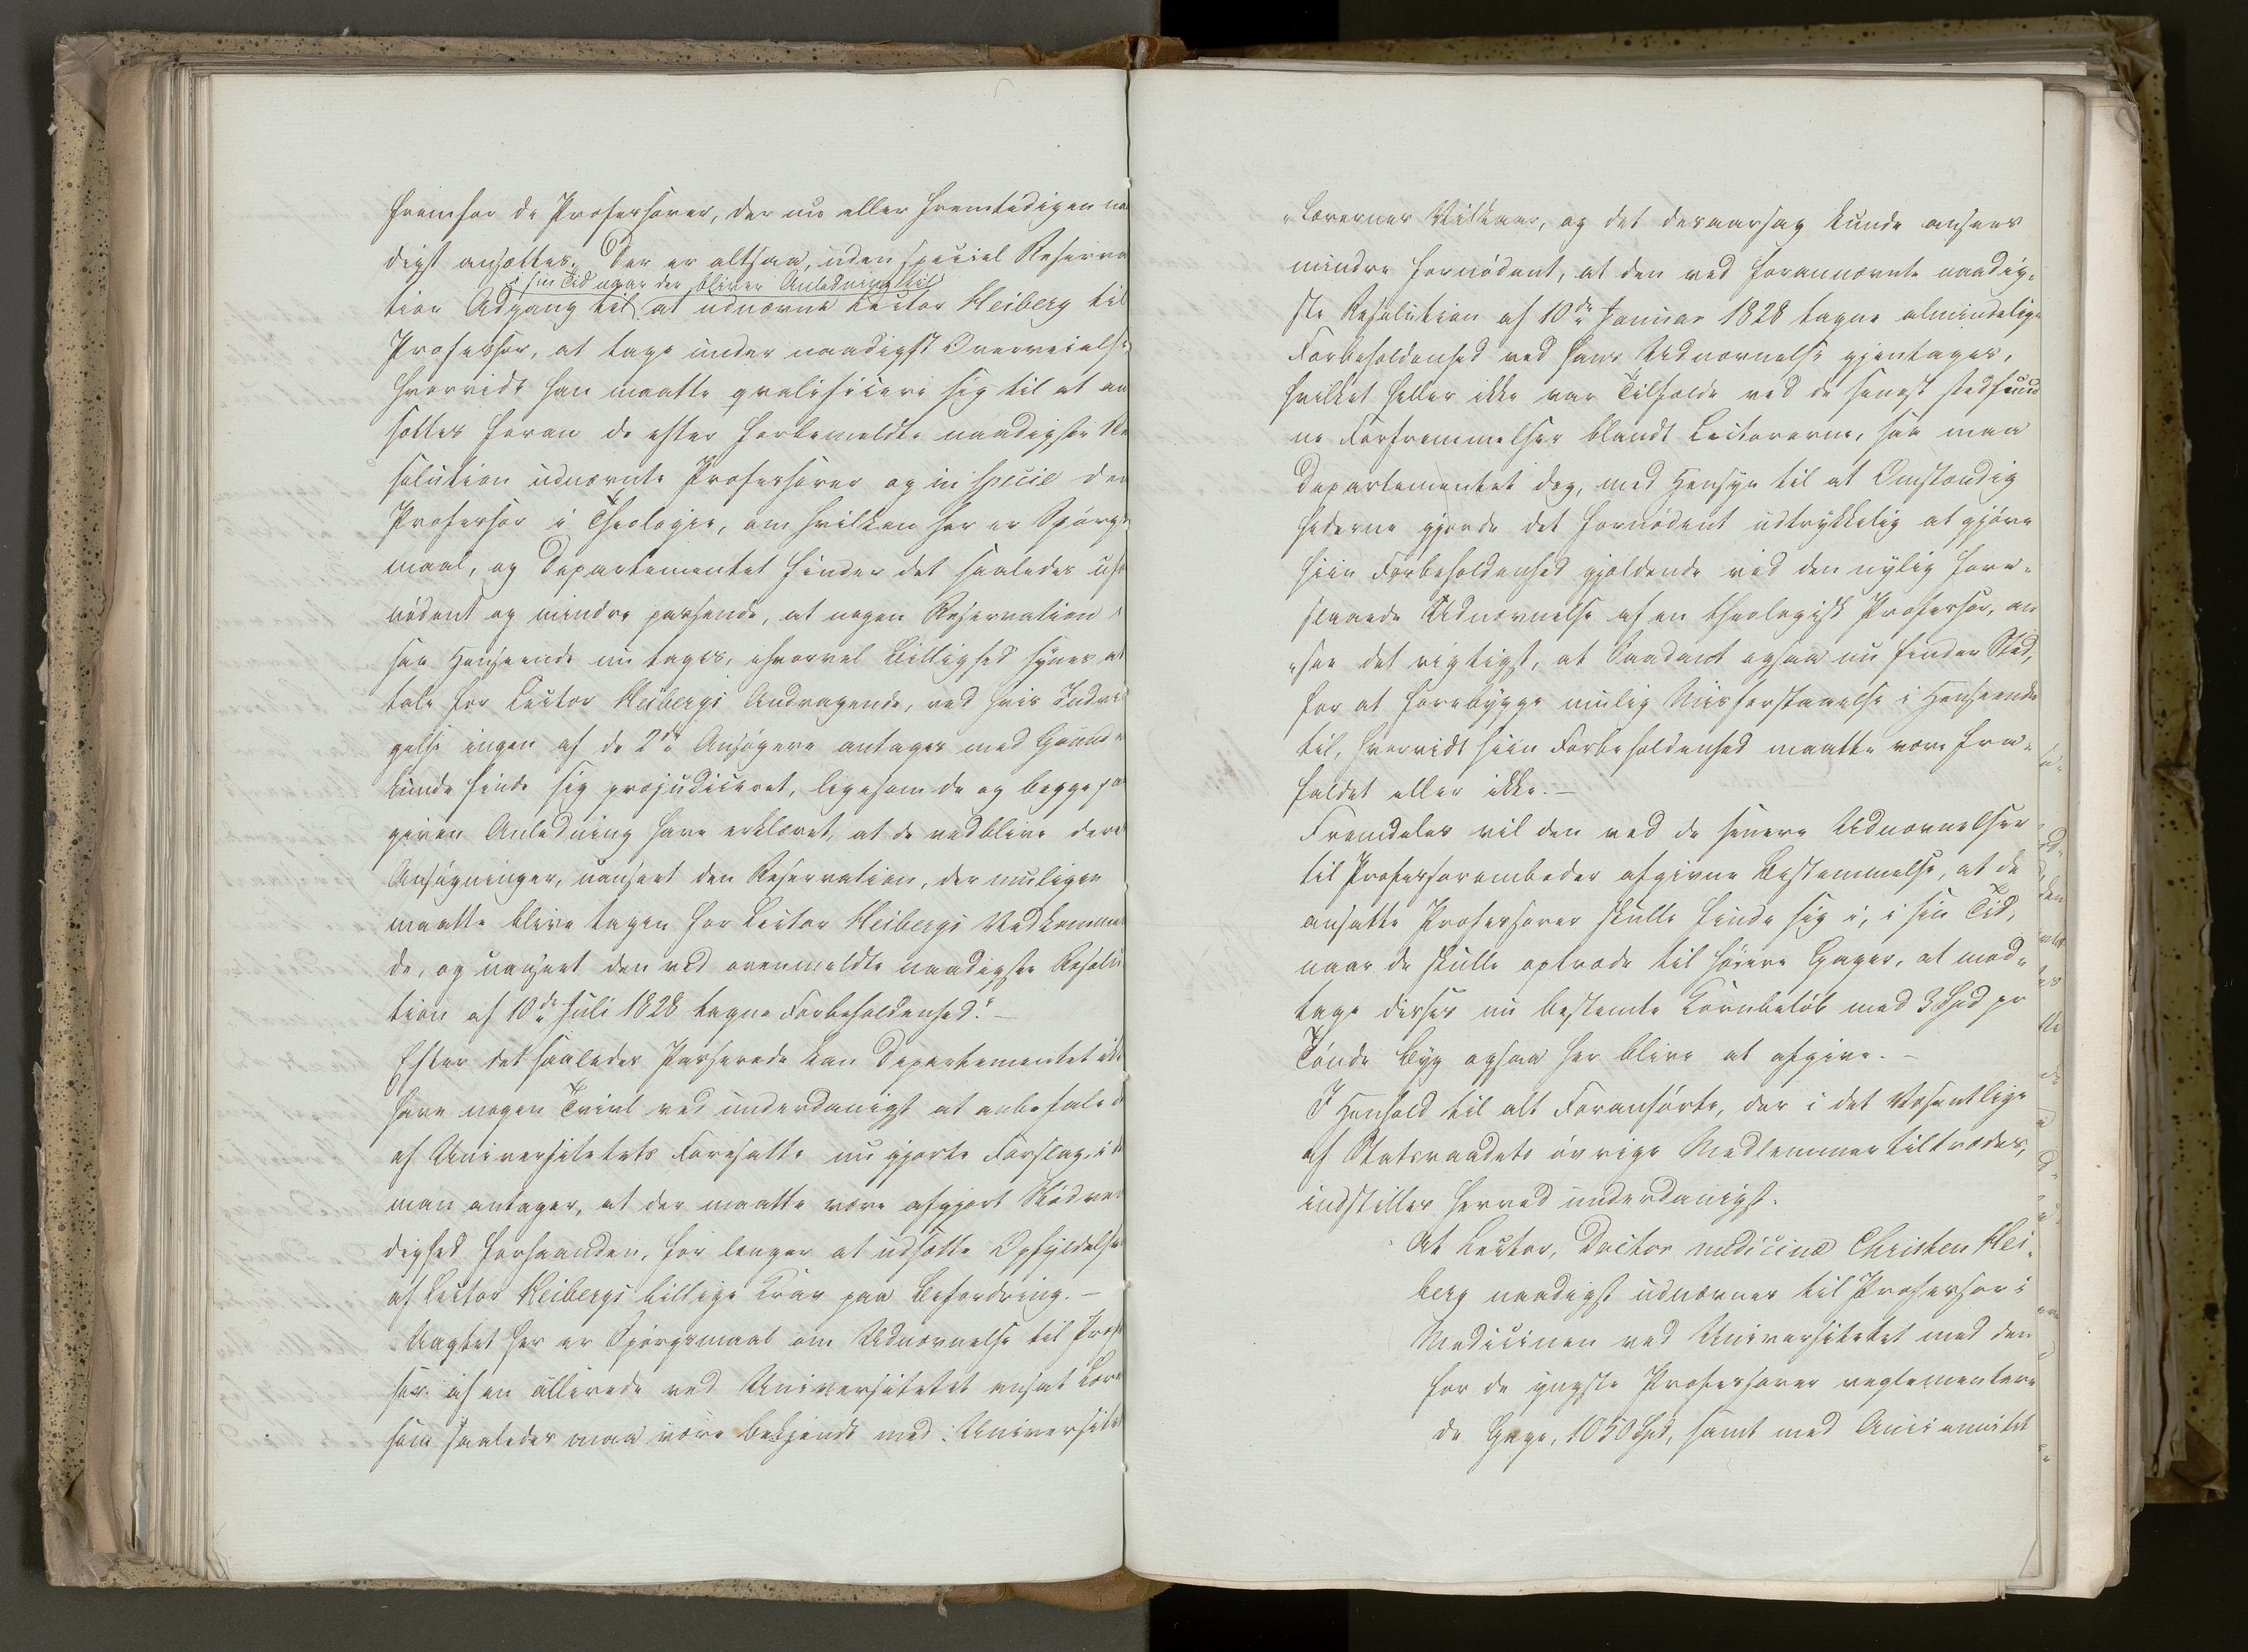 fremfor de Professorer, der nu eller fremtidigen naa
digst ansættes. Der er altsaa, uden special Reserva
i sin Tid naar der bliver Anledning til
tion Adgang til at udnævne Lector Heiberg til
Professor, at tage under naadigst Overveielse,
hvorvidt han maatte qvalificere sig til at an
sættes foran de efter forbemeldte naadigste Re
solution udnævnte Professorer og in specie den
Professor i Theologie, om hvilken her er Spørgs
maal, og Departementet finder det saaledes ufor
nødent og mindre passende, at nogen Reservation i
saa Henseende nu tages, ihvorvel Billighed synes at
tale for Lector Heibergs Andragende, ved hvis Indvil
gelse ingen af de 2de Ansøgere antages med Grund
kunde finde sig præjudiceret, ligesom de og begge paa
given Anledning have erklæret, at de vedblive deres
Ansøgninger, uanseet den Reservation, der muligen
maatte blive tagen for Lector Heibergs Vedkommen
de, og uanseet den ved ovenmeldte naadigste Resolu
tion af 10de Juli 1828 tagne Forbeholdenhed." —
Efter det saaledes Passerede kan Departementet ikke
have nogen Tvivl ved underdanigst at anbefale det
af Universitetets Foresatte nu gjorte Forslag, i det
man antager, at der maatte være afgjort Nødven
dighed forhaanden, for længer at udsætte Opfyldelsen
af Lector Heibergs billige Krav paa Befordring. —
Uagtet her er Spørgsmaal om Udnævnelse til Profes
sor af en allerede ved Universitetet ansat Lærer
som saaledes maa være bekjendt med Universitets
Lærernes Vilkaar, og det desaarsag kunde ansees
mindre fornødent, at den ved forannævnte naadig-
ste Resolution af 10de Januar 1828 tagne almindelige
Forbeholdenhed ved hans Udnævnelse gjentages,
hvilket heller ikke var Tilfælde ved de senest stedfund
ne Forfremmelser blandt Lectorerne, saa maa
Departementet dog, med Hensyn til at Omstændig
hederne gjorde det fornødent udtrykkelig at gjøre
hiin Forbeholdenhed gjældende ved den nylig fore-
slaaede Udnævnelse af en theologisk Professor, an
see det rigtigst, at Saadant ogsaa nu finder Sted,
for at forebygge mulig Misforstaaelse i Henseende
til, hvorvidt hiin Forbeholdenhed maatte være fra-
faldet eller ikke. —
Fremdeles vil den ved de senere Udnævnelser
til Professorembeder afgivne Bestemmelse, at de
ansatte Professorer skulle finde sig i, i sin Tid,
naar de skulle optræde til høiere Gager, at mod-
tage disses nu bestemte Kornbeløb med 3 Spd pr
Tønde Byg ogsaa her blive at afgive. —
I Henhold til alt Foranførte, der i det Væsentlige
af Statsraadets øvrige Medlemmer tiltrædes,
indstilles herved underdanigst:
At Lector, Doctor medicinæ Christen Hei-
berg naadigst udnævnes til Professor i
Medicinen ved Universitetet med den
for de yngste Professorer reglementere
de Gage, 1050 Spd, samt med Anciennitet